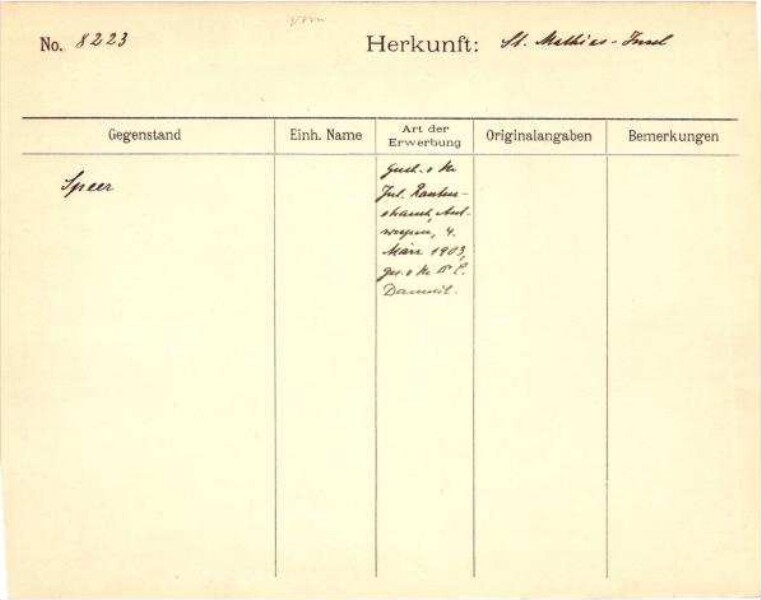 No. 8223 Herkunft: St. Mathias-Insel
Gegenstand Einh. Name Art der Erwerbung Originalangaben Bemerkungen
Speer
Gesch. v Hr
Jul. Rauten-
strauch, Ant-
werpen, 4.
März 1903,
ges. v Hr Dr